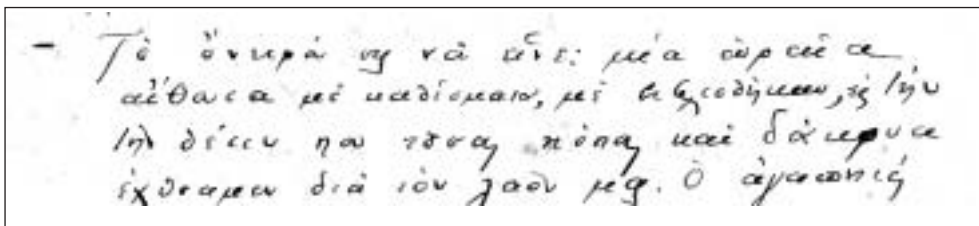 – Τὸ ὄνειρό νὰ εἶνε: μία ὡραία
αἴθουσα μὲ καθίσματα, μὲ βιβλιοθήκην, εἰς τὴν
τὴν θέσιν που τόσους κόπους καὶ δάκρυα
ἐχύσαμεν διὰ τὸν λαόν μας. Ὁ